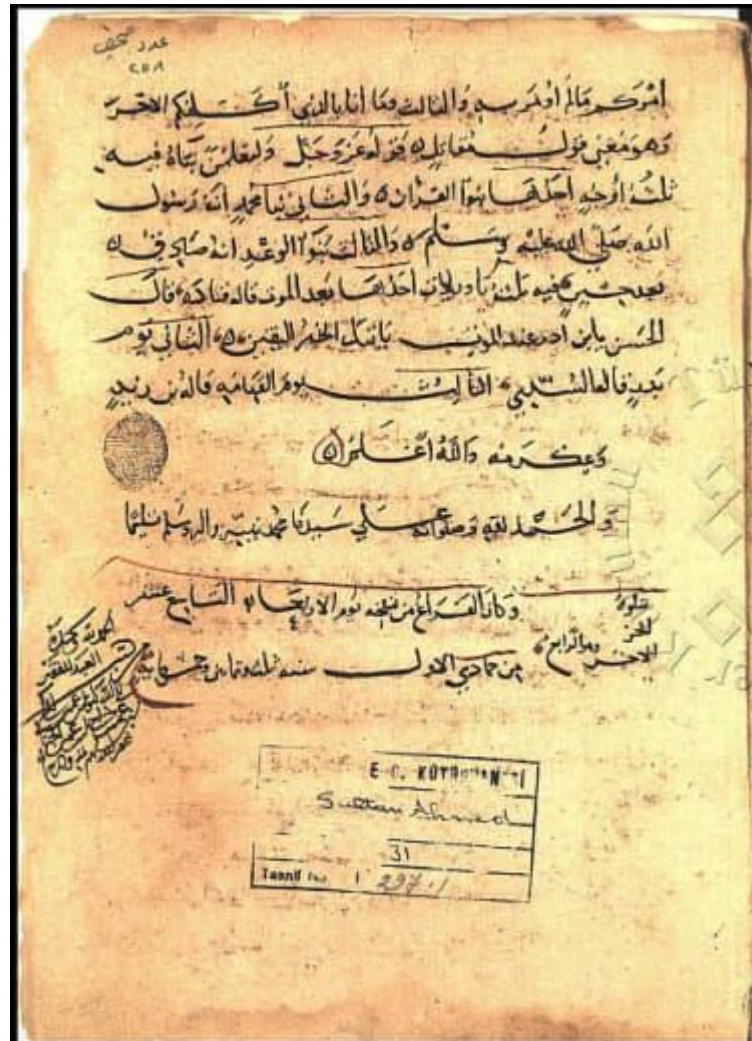 عدد صحيفة
٢٥٨
أمركم مالم أومر به والثالث وما أنا بالذي أكلفكم الأجر
وهو معنى قول مقاتل ه قوله عز وجل ولتعلمن نبأه فيه
ثلثة أوجه أحدها نبوا القران ه والثاني نبأ محمد أنه رسول
الله صلى الله عليه وسلم ه والثالث نبوا الوعيد انه صادق ه
بعد حين فيه ثلثة تأويلات أحدها بعد الموت قاله قتادة قال
الحسن يابن آدم عند الموت يأتيك الخبر اليقين ه الثاني يوم
بدر قاله السدي الثالث يوم القيامه قاله بن زيد
وعكرمه والله أعلم ه
والحمد لله وصلواته على سيدنا محمد نبيه واله وسلم تسليما
وكان الفراغ من نسخه يوم الاربعاء التاسع عشر
من جمادي الاول سنه ثلث وثمانين وخمس مايه
يتلوه
الجزء
الاخر
وهو الرابع
العبد الفقير
E. C. KÜTÜPHANESİ
Sultan Ahmed
31
Tasnif No. 297.1